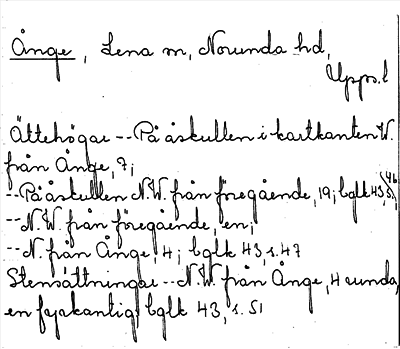 Ånge, Lena sn, Norunda hd,
Upps. l
Ättehögar -- På åskullen i kartkanten W.
från Ånge, 7;
-- På åskullen N.W. från föregående, 19; bglk 43, s. 46, 51,
-- N.W. från föregående, en;
-- N. från Ånge, 4; bglk 43, s. 47
Stensättningar -- N.W. från Ånge, 4 runda,
en fyrkantig bglk 43, s. 51